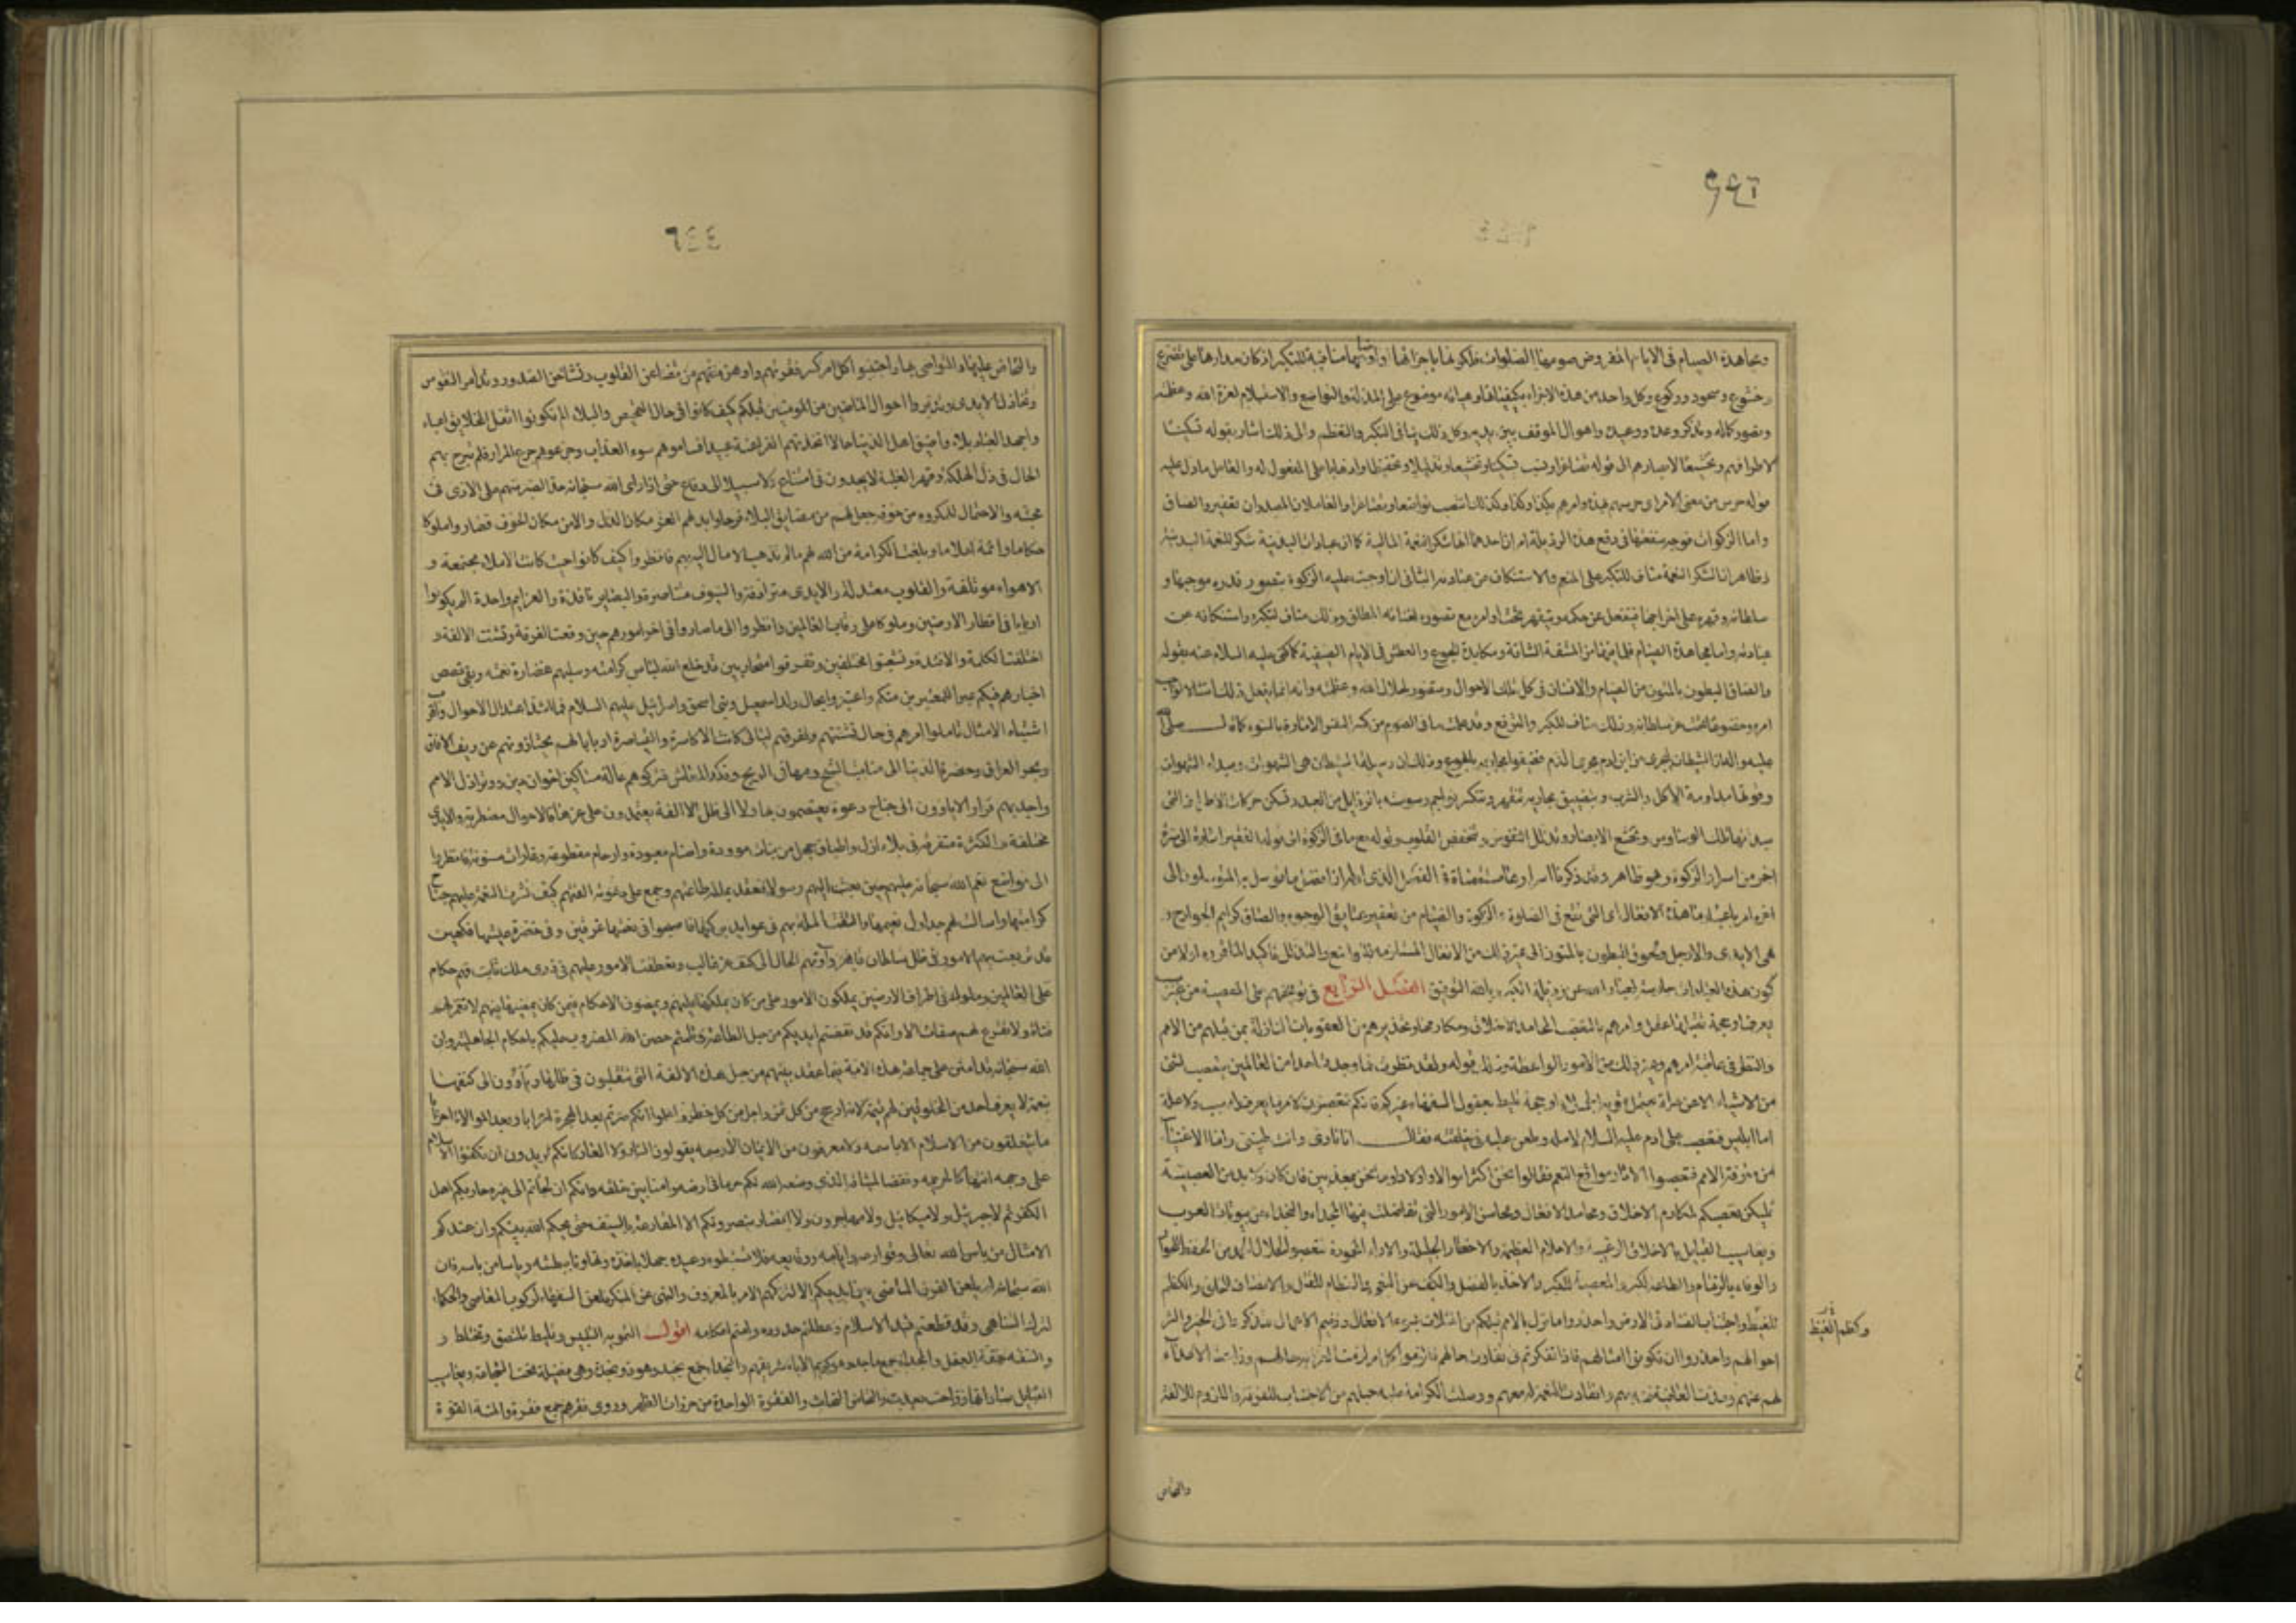 ٦٤٤
ومجاهدة الصيام فى الايام المفروض صومها اما الصلوات فلكونها باجزائها واوضاعها منافية للتكبر اذ كان مدارها على تضرع
وخشوع وسجود وركوع وكل واحد من هذه الاجزاء بكيفياتها وهيآته موضوع على المذلة والتواضع والاستسلام لعزة الله وعظمته
وتصور كماله وتذكر وعده ووعيده واهوال الموقف بين يديه وكل ذلك ينافى التكبر والتعظم والى ذلك اشار بقوله تسكينا
لاطرافهم وتخشيعا لابصارهم الى قوله تصاغرا ونصب تسكينا وتخشيعا وتذليلا وتخفيضا واذهابا على المفعول له والعامل ما دل عليه
قوله حرس من معنى الامر اى حرسهم بهذه وامرهم بكذا وكذا وكذلك انتصب تواضعا وتصاغرا والعاملان المصدران تعفير والصاق
واما الزكوات فوجه منفعتها فى دفع هذه الرذيلة امران احدهما انها شكر لنعمة المالية كما ان عبادات البدنية شكر للنعمة البدنية
وظاهر ان شكر النعمة مناف للتكبر على المنعم والاستنكاف من عبادته الثانى ان من وجبت عليه الزكوة يتصور قدره موجبها و
سلطانه وقهره على اخراجها فينفعل عن حكمه ويتقهر تحت اوامره مع تصوره لغنائه المطلق وذلك مناف لتكبره واستنكافه عن
عبادته واما مجاهدة الصيام فلما فيها من المشقة الشاقة ومكابدة الجوع والعطش فى الايام الصيفية كما كنى عليه السلام عنه بقوله
والصاق البطون بالمتون من الصيام والانسان فى كل تلك الاحوال متصور لجلال الله وعظمته وانه انما يفعل ذلك امتثالا لواجب
امره وخضوعا تحت عز سلطانه وذلك مناف للكبر والترفع وقد علمت ما فى الصوم من كسر النفس الامارة بالسوء كما قال صلى الله
عليه واله ان الشيطان ليجرى من ابن ادم مجرى الدم فضيقوا مجاريه بالجوع وذلك ان وسيلة الشيطان هى الشهوات ومبداء الشهوات
وقوتها مداومة الاكل والشرب وبتضييق مجاريه تنقهر وتنكسر نواجم وسوسته بالرذايل من العبد وتسكن حركات الاطراف التى
مبدئها تلك الوساوس وتخشع الابصار وتذلل النفوس وتخفض القلوب وقوله مع ما فى الزكوة الى قوله الفقير اشارة الى سر
اخر من اسرار الزكوة وهو ظاهر وقد ذكرنا اسرارها مستقصاة فى الفصل الذى اوله ان افضل ما توسل به المتوسلون الى
اخره ثم امر باعتبار ما فى هذه الافعال اى التى تقع فى الصلوة والزكوة والصيام من تعفير عتايق الوجوه والصاق كرايم الجوارح و
هى الايدى والارجل ولحوق البطون بالمتون الى غير ذلك من الافعال المستلزمة للتواضع والتذلل تاكيدا لما قرره اولا من
كون هذه العبادات حارسة لعباد الله عن رذيلة الكبر وبالله التوفيق الفصل الرابع فى توبيخهم على المعصية من غير سبب
يعرف او حجة تقبلها عقل وامرهم بالتعصب لمحامد الاخلاق ومكارمها وتحذيرهم من العقوبات النازلة بمن قبلهم من الامم
والنظر فى عاقبة امرهم وغير ذلك من الامور الواعظة وذلك قوله ولقد نظرت فما وجدت احدا من العالمين يتعصب لشئ
من الاشياء الا عن علة تحتمل تمويه الجهلاء او حجة تليط بعقول السفهاء غيركم فانكم تتعصبون لامر ما يعرف له سبب ولا علة
اما ابليس فتعصب على ادم عليه السلام لاصله وطعن عليه فى خلقته فقال انا نارى وانت طينى واما الاغنياء
من مترفة الامم فتعصبوا لاثار مواقع النعم فقالوا نحن اكثر اموالا واولادا وما نحن بمعذبين فان كان لا بد من العصبية
فليكن تعصبكم لمكارم الاخلاق ومحامد الافعال ومحاسن الامور التى تفاضلت فيها المجداء والنجداء من بيوتات العرب
ويعاسيب القبايل بالاخلاق الرغيبة والاحلام العظيمة والاخطار الجليلة والاثار المحمودة فتعصبوا لخلال الحمد من الحفظ للجوار
والوفاء بالذمام والطاعة للبر والمعصية للكبر والاخذ بالفضل والكف عن البغى والاعظام للقتل والانصاف للخلق والكظم
للغيظ واجتناب الفساد فى الارض واحذروا ما نزل بالامم قبلكم من المثلات بسوء الافعال وذميم الاعمال فتذكروا فى الخير والشر
احوالهم واحذروا ان تكونوا امثالهم فاذا تفكرتم فى تفاوت حالهم فالزموا كل امر لزمت العزة به حالهم وزاحت الاعداء
لهم عنهم ومدت العافية فيه بهم وانقادت النعمة له معهم ووصلت الكرامة عليه حبلهم من الاجتناب للفرقة واللزوم للالفة
وكظم الغيظ
والتحاض
٦٤٤
والتحاض عليها والتواصى بها واجتنبوا كل امر كسر فقرتهم واوهن منتهم من تضاغن القلوب وتشاحن الصدور وتدابر النفوس
وتخاذل الايدى وتدبروا احوال الماضين من المومنين قبلكم كيف كانوا فى حال التمحيص والبلاء الم تكونوا اثقل الخلايق اعباء
واجهد العباد بلاء واضيق اهل الدنيا حالا اتخذتهم الفراعنة عبيدا فساموهم سوء العذاب وجرعوهم جرع المرار فلم تبرح بهم
الحال فى ذل الهلكة وقهر الغلبة لا يجدون حيلة فى امتناع ولا سبيلا الى دفاع حتى اذا راى الله سبحانه جد الصبر منهم على الاذى فى
محبته والاحتمال للمكروه من خوفه جعل لهم من مضايق البلاء فرجا وابدلهم العز مكان الذل والامن مكان الخوف فصاروا ملوكا
حكاما وائمة اعلاما وبلغت الكرامة من الله لهم ما لم تذهب الامال اليه بهم فانظروا كيف كانوا حيث كانت الاملاء مجتمعة و
الاهواء موتلفة والقلوب معتدلة والايدى مترادفة والسيوف متناصرة والبصاير نافذة والعزايم واحدة الم يكونوا
اربابا فى اقطار الارضين وملوكا على رقاب العالمين وانظروا الى ما صاروا فى اخر امورهم حين وقعت الفرقة وتشتت الالفة و
اختلفت الكلمة والافئدة وتشعبوا مختلفين وتفرقوا متحاربين قد خلع الله لباس كرامته وسلبهم غضارة نعمته وبقى قصص
اخبارهم فيكم عبرا للمعتبرين منكم واعتبروا بحال ولد اسمعيل وبنى اسحق واسرائيل عليهم السلام فما اشد اعتدال الاحوال واقرب
اشتباه الامثال تاملوا امرهم فى حال تشتتهم وتفرقهم ليالى كانت الاكاسرة والقياصرة اربابا لهم يحتازونهم عن ريف الافاق
وبحر العراق وخضرة الدنيا الى منابت الشيح ومهافى الريح ونكد المعاش فتركوهم عالة مساكين اخوان دبر ووبر اذل الامم
دارا واجدبهم قرارا لا ياوون الى جناح دعوة يعتصمون بها ولا الى ظل الالفة يعتمدون على عزها فالاحوال مضطربة والايدى
مختلفة والكثرة متفرقة فى بلاء ازل واطباق جهل من بنات موودة واصنام معبودة وارحام مقطوعة وغارات مشنونة فانظروا
الى مواقع نعم الله سبحانه عليهم حين بعث اليهم رسولا فعقد بملته طاعتهم وجمع على دعوته الفتهم كيف نشرت النعمة عليهم جناح
كرامتها واسالت لهم جداول نعيمها والتفت الملة بهم فى عوايد بركتها فاصبحوا فى نعمتها غرقين وفى خضرة عيشها فكهين
قد تربعت بهم الامور فى ظل سلطان قاهر وآوتهم الحال الى كنف عز غالب وتعطفت الامور عليهم فى ذرى ملك ثابت فهم حكام
على العالمين وملوك فى اطراف الارضين يملكون الامور على من كان يملكها عليهم ويمضون الاحكام فيمن كان يمضيها فيهم لا تغمز لهم
قناة ولا تقرع لهم صفاة الا وانكم قد نفضتم ايديكم من حبل الطاعة وثلمتم حصن الله المضروب عليكم باحكام الجاهلية وان
الله سبحانه قد امتن على جماعة هذه الامة فيما عقد بينهم من حبل هذه الالفة التى ينتقلون فى ظلها وياوون الى كنفها
بنعمة لا يعرف احد من المخلوقين لهم قيمة لانها ارجح من كل ثمن واجل من كل خطر واعلموا انكم صرتم بعد الهجرة اعرابا وبعد الموالاة احزابا
ما يتعلقون من الاسلام الا باسمه ولا تعرفون من الايمان الا رسمه يقولون النار ولا العار كانكم تريدون ان تكفئوا الاسلام
على وجهه انتهاكا لحريمه ونقضا لميثاقه الذى وضعه الله لكم حرما فى ارضه وامنا بين خلقه وانكم ان لجاتم الى غيره حاربكم اهل
الكفر ثم لا جبرئيل ولا ميكائيل ولا مهاجرون ولا انصار ينصرونكم الا المقارعة بالسيف حتى يحكم الله بينكم وان عندكم
الامثال من باس الله تعالى وقوارعه وايامه ووقايعه فلا تستبطوا وعيده جهلا باخذه وتهاونا ببطشه وياسا من باسه فان
الله سبحانه لم يلعن القرن الماضى بين ايديكم الا لتركهم الامر بالمعروف والنهى عن المنكر فلعن السفهاء لركوب المعاصى والحلماء
لترك التناهى وقد قطعتم قيد الاسلام وعطلتم حدوده وامتم احكامه اقول التمويه التلبيس وتليط تلتصق وتختلط و
والسفه خفة العقل والمجداء جمع ماجد وهو كريم الاباء شريفهم والنجداء جمع نجيد وهو ذو نجدة وهى فضيلة تحت الشجاعة ويعاسيب
القبايل ساداتها وزاحت بعدت والتحاض التحاث والفقرة الواحدة من خرزات الظهر وروى فقرهم جمع فقرة والمنة القوة